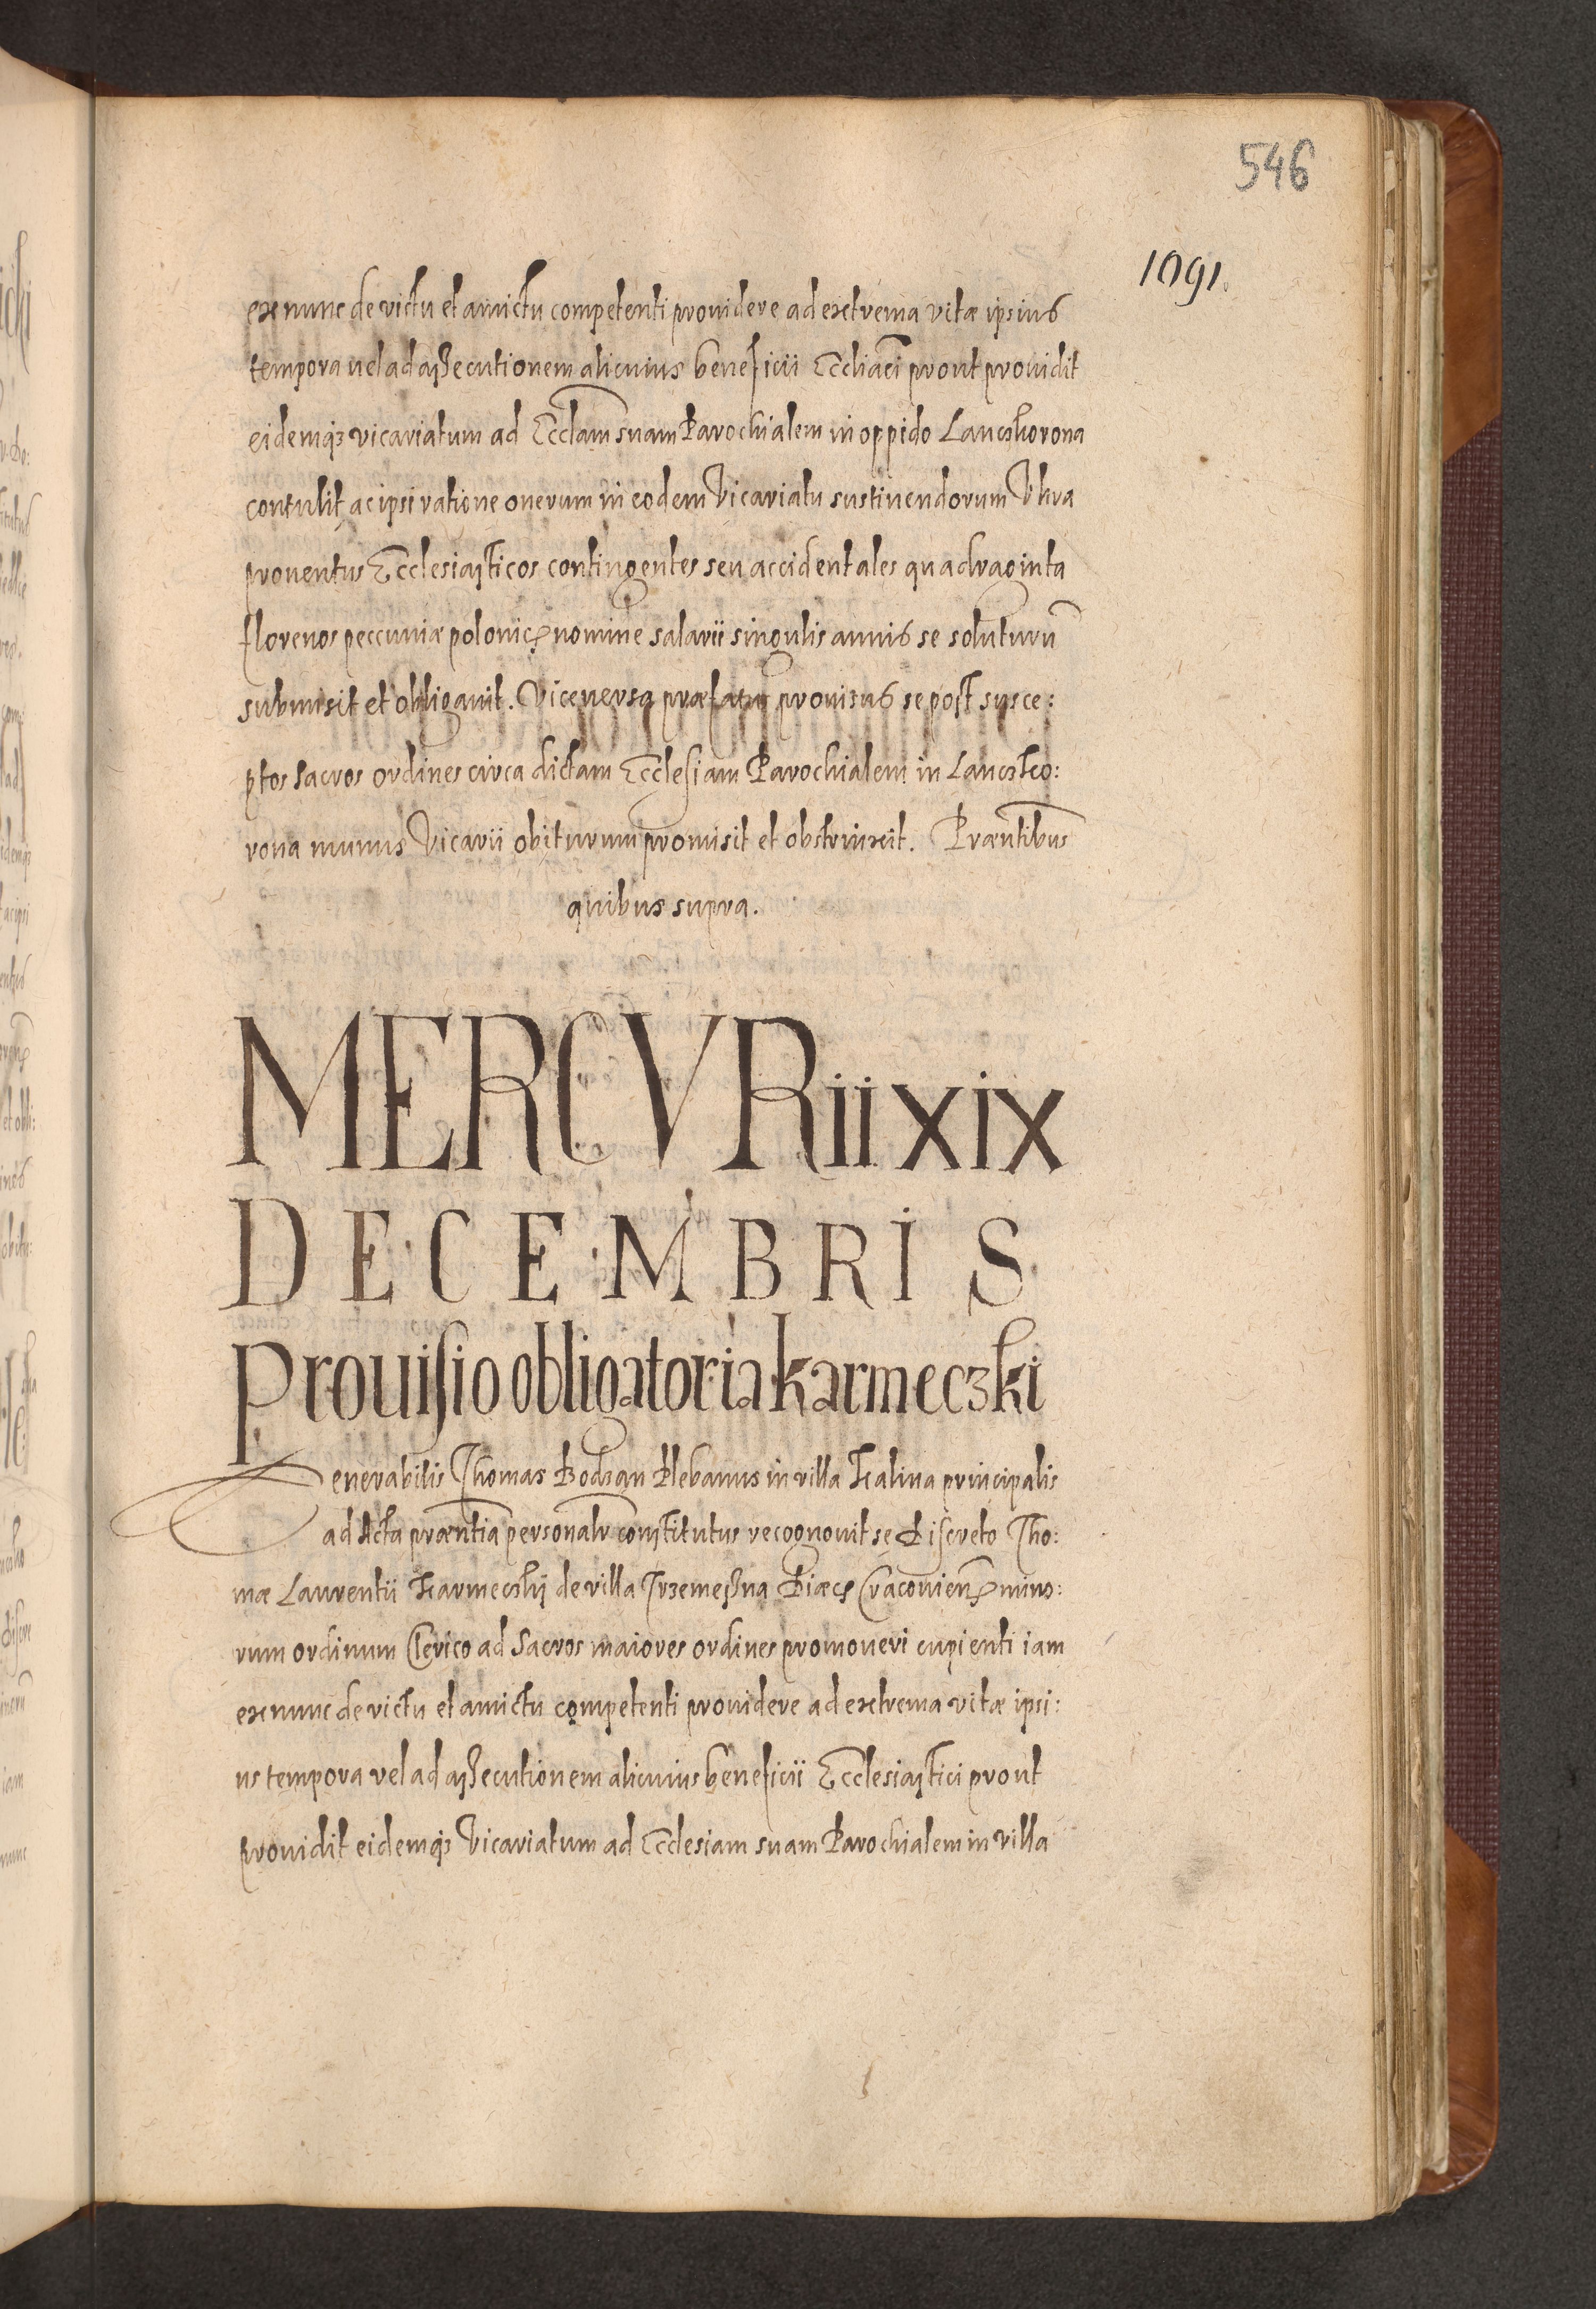 546
1091.
ex nunc de victu et amictu competenti prouidere ad extrema vitæ ipsius
tempora uel ad assecutionem alicuius beneficii Eccliaci prout prouidit
eidemq₃ vicariatum ad Ecclam suam Parochialem in oppido Lanczkorona
contulit ac ipsi ratione onerum in eodem Vicariatu sustinendorum Vltra
prouentus Ecclesiasticos contingentes seu accidentales quadraginta
florenos peccuniæ polonicę nomine salarii singulis annis se soluturū
submisit et obligauit. Viceuersa præfatus prouisus se post susce:
ptos sacros ordines circa dictam Ecclesiam Parochialem in Lanczko:
rona munus Vicarii obiturum promisit et obstrinxit. Præntibus
quibus supra.
MERCVRii xix
DECEMBRIS
Prouisio obligatoria karmeczki
Venerabilis Thomas Bodzan Plebanus in villa Kalina principalis
ad Acta præntia personalr constitutus recognouit se Discreto Tho:
mæ Laurentii Karmeczkij de villa Trzemeszna Diæcę Cracouien̄ mino:
rum ordinum Clerico ad Sacros maiores ordines promoueri cupienti iam
ex nunc de victu et amictu competenti prouidere ad extrema vitæ ipsi:
us tempora vel ad assecutionem alicuius beneficii Ecclesiastici prout
prouidit eidemq₃ Vicariatum ad Ecclesiam suam Parochialem in villa